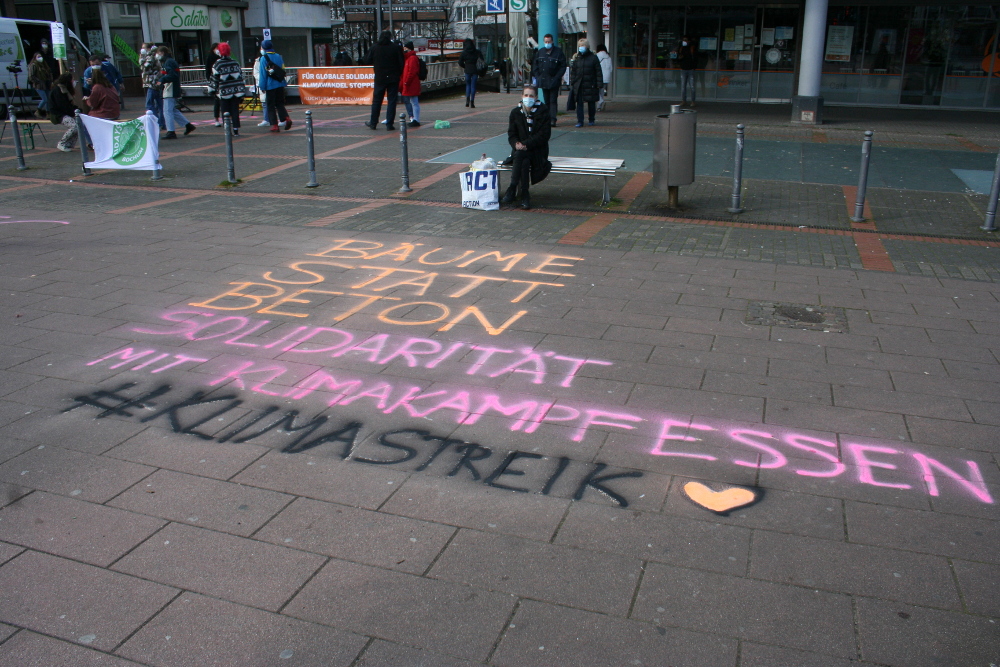 Salatbar
FÜR GLOBALE SOLIDAR
KLIMAWANDEL STOPPE
ACT
ACTION
BÄUME
STATT
BETON
SOLIDARITÄT
MIT KLIMAKAMPF ESSEN
#KLIMASTREIK